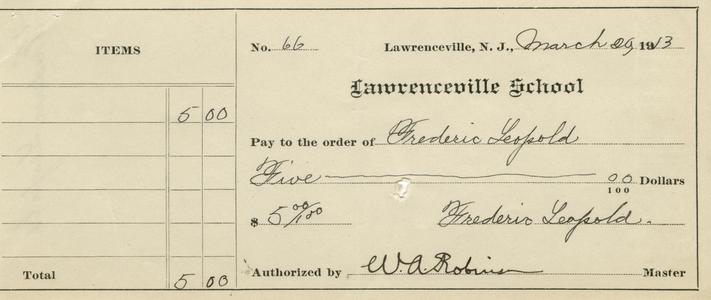 ITEMS
No. 66 Lawrenceville, N. J., March 20, 1913
Lawrenceville School
5 00
Pay to the order of Frederic Leopold
Five 00/100 Dollars
$ 5 00/100 Frederic Leopold.
Total 5 00
Authorized by W. A. Robinson Master